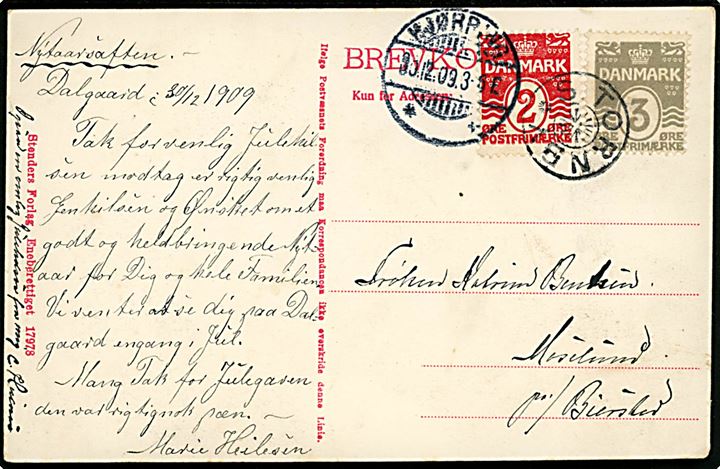 Nytaarsaften. –
Dalgaard: 30/12 1909
Tak for venlig Julehil
sen modtag er rigtig venlig
Genhilsen og Ønsket om et
godt og heldbringende Nyt
aar for Dig og hele Familien
Vi venter at se dig paa Dal
gaard engang i Jul.
Mang Tak for Julegaven
den var rigtignok pæn. –
Marie Heilesen
Stenders Forlag. Eneberettiget 17978
Ifølge Postvæsnets Forordning maa Korrespondancen ikke overskride denne Linie.
BREVKO
Kun for Adres
HJØRRING
30.12.09.3-4 E
DANMARK
2
ØRE ØRE
POSTFRIMÆRKE
DANMARK
3
ØRE ØRE
POSTFRIMÆRKE
TORNB
Frøken Katrine Bentsen
Moselund
pr/ Biersted